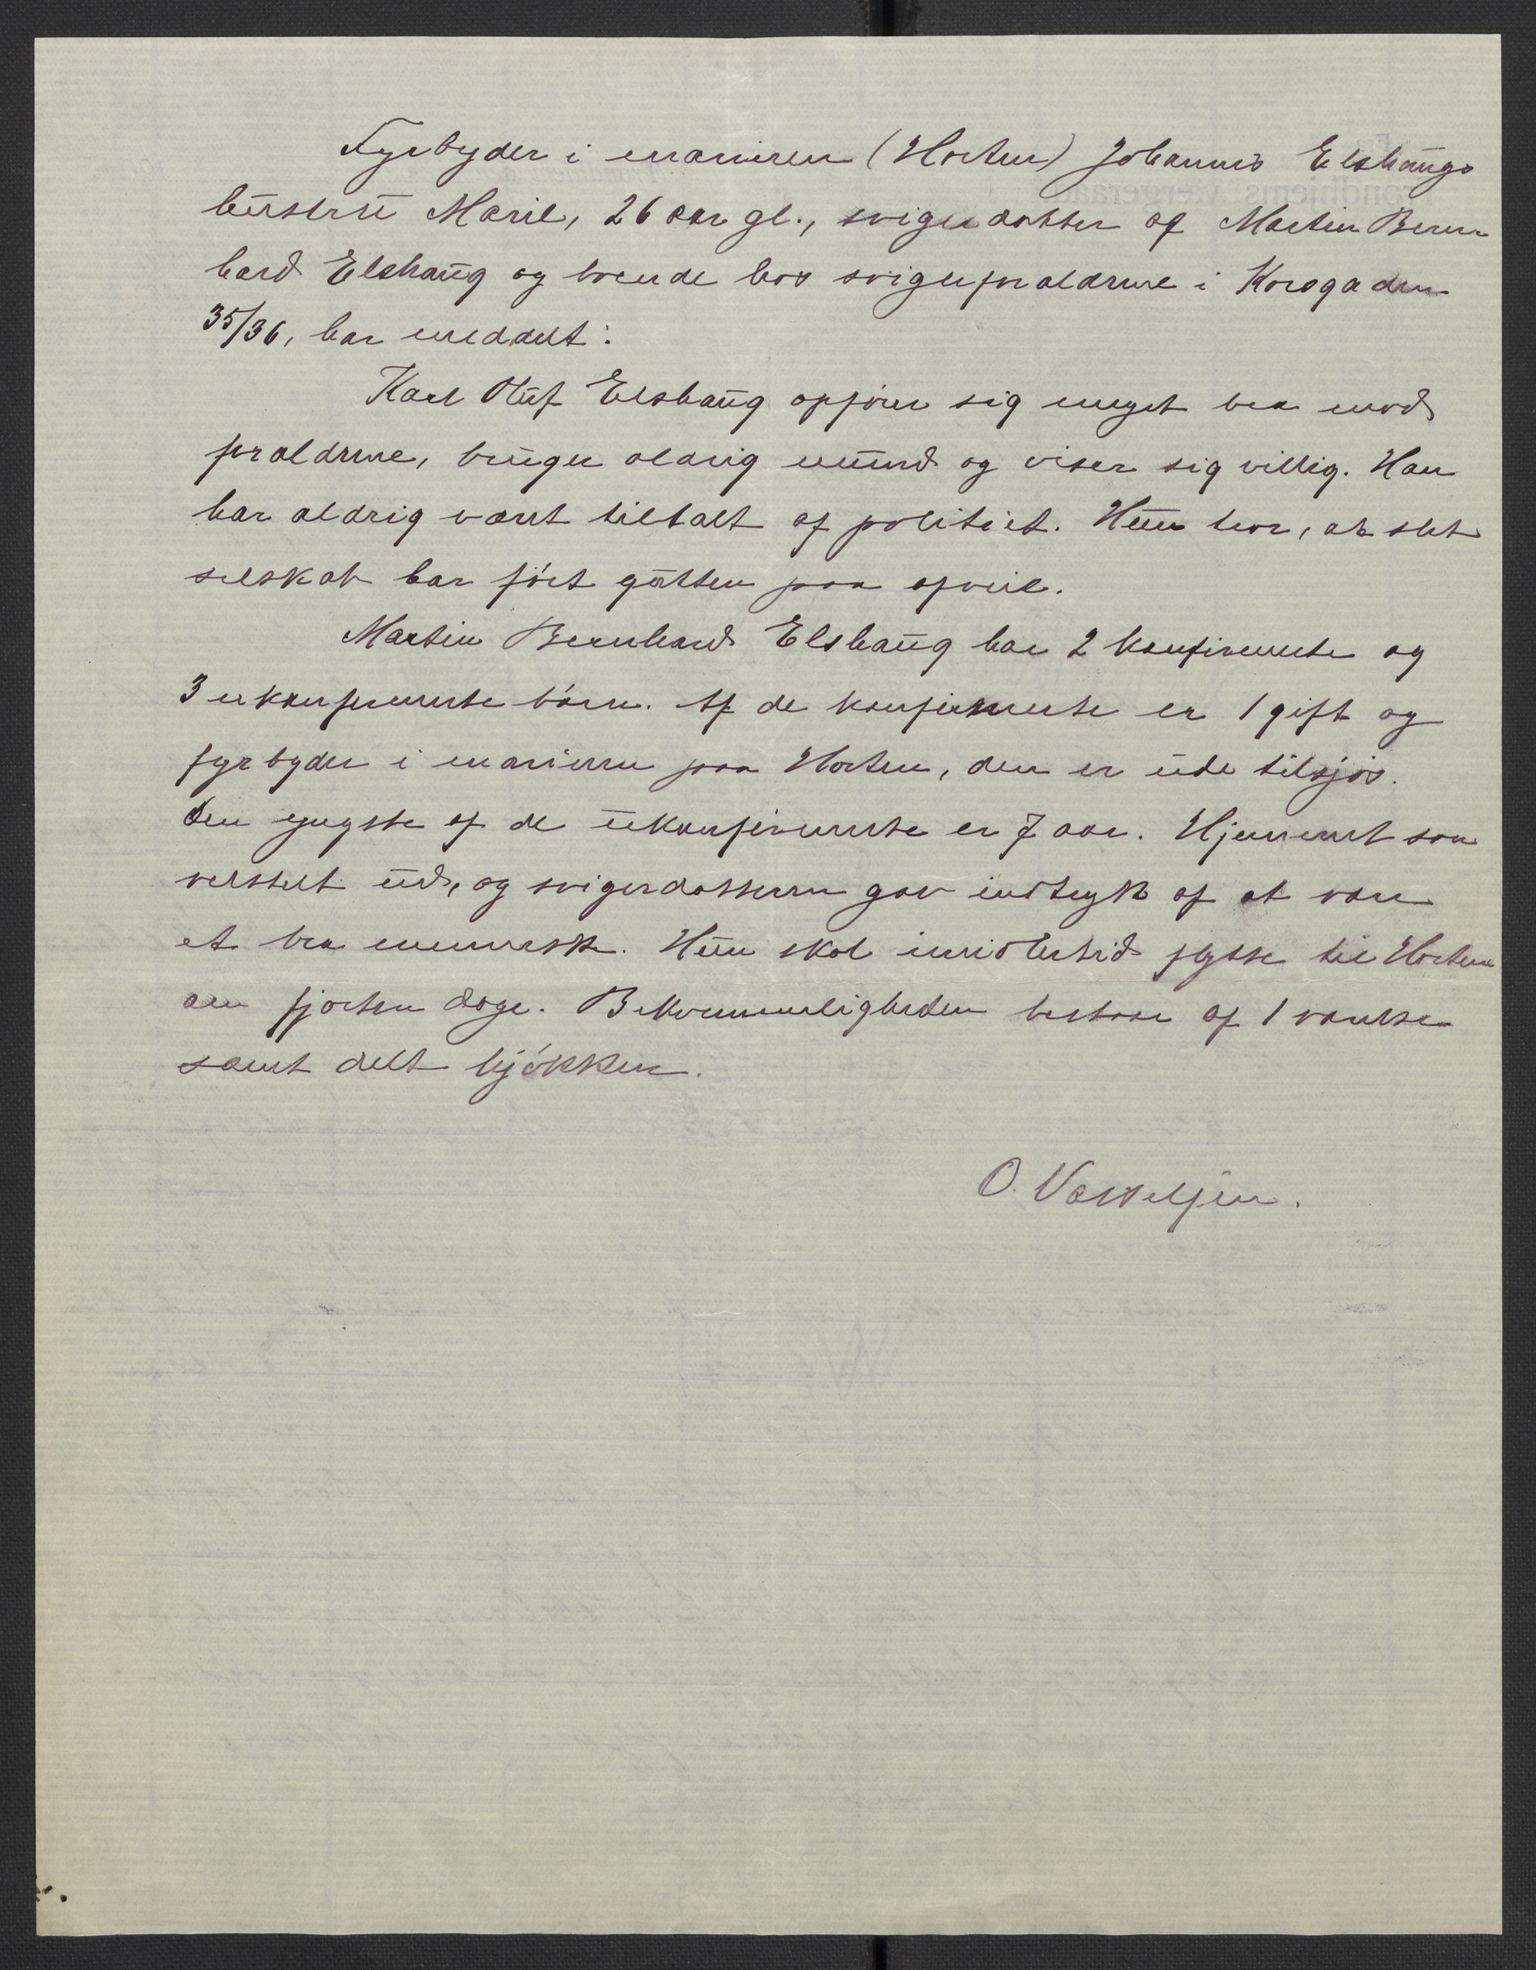 Fyrbyder i marinen (Horten) Johannes Elshaugs
hustru Marie, 26 aar gl., svigerdatter af Martin Bern-
hard Elshaug og boende hos svigerforældrene i Korsgaden
35/36, har meddelt:
Karl Oluf Elshaug opfører sig meget bra mod
forældrene, bruger aldrig mund og viser sig villig. Han
har aldrig været tiltalt af politiet. Hun tror, at slet
selskab har ført gutten paa afveie.
Martin Bernhard Elshaug har 2 konfirmerte og
3 ukonfirmerte børn. Af de konfirmerte er 1 gift og
fyrbyder i marinen paa Horten, den er ude tilsjøs.
Den yngste af de ukonfirmerte er 7 aar. Hjemmet saa
velstelt ud, og svigerdatteren gav indtryk af at være
et bra menneske. Hun skal imidlertid flytte til Horten
om fjorten dage. Bekvemmeligheden bestaar af 1 værelse
samt delt kjøkken.
O. Vasseljen.